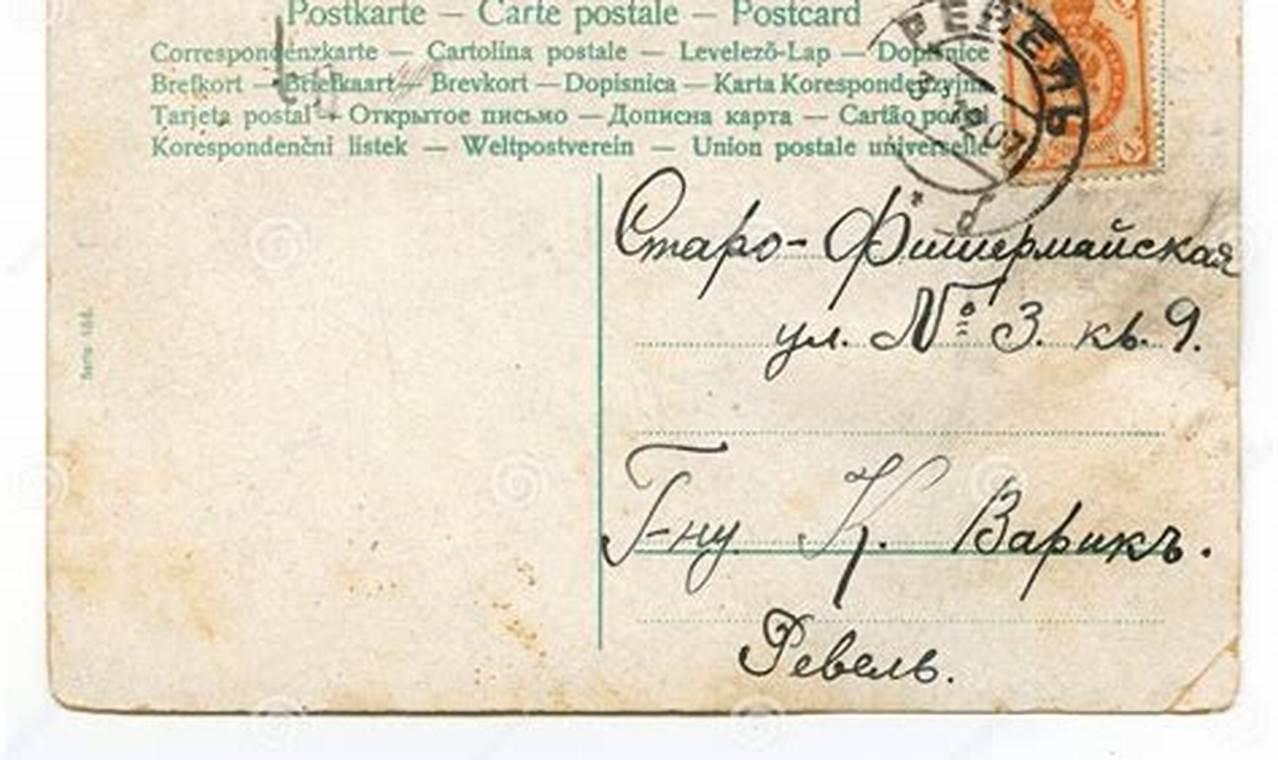 Postkarte — Carte postale — Postcard
Correspondenzkarte — Cartolina postale — Levelező-Lap — Dopisnice
Brefkort — Briefkaart — Brevkort — Dopisnica — Karta Korespondenzyjna
Tarjeta postal — Открытое письмо — Дописна карта — Cartão postal
Korespondenčni listek — Weltpostverein — Union postale universelle
РЕВЕЛЬ
Старо-Фишермайская
ул. № 3. кв. 9.
Г-ну К. Варикъ.
Ревель.